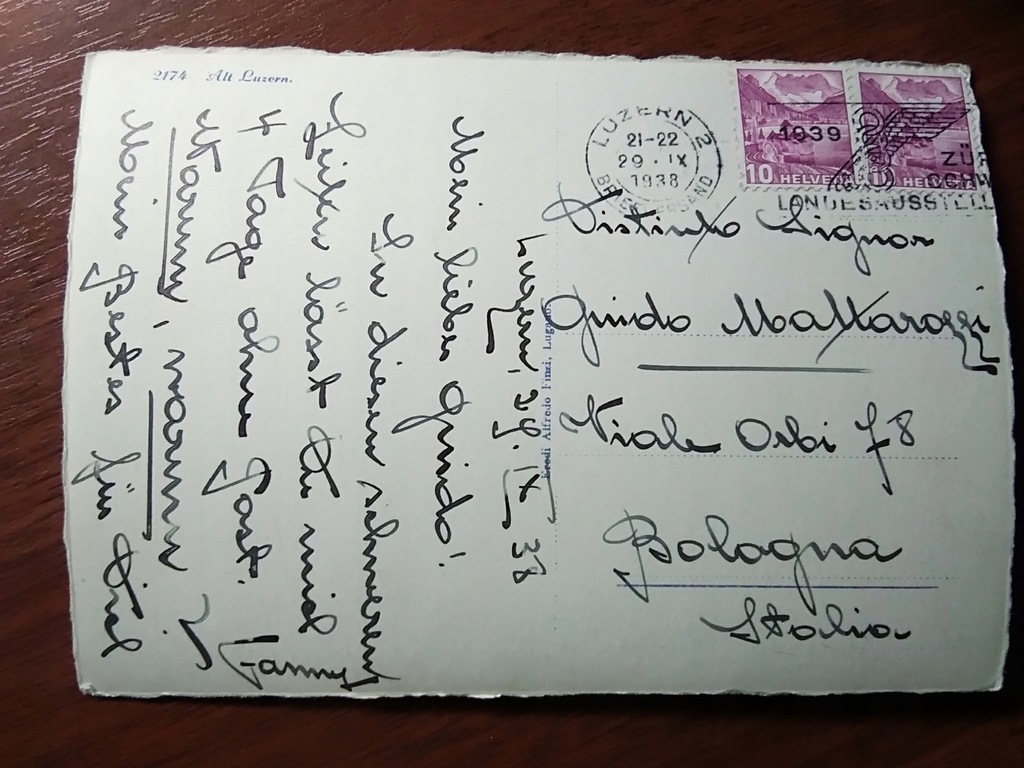 2174 Alt Luzern.
Luzern, 29. IX 38
Mein lieber Guido!
In diesen schweren
Zeiten lässt Du mich
4 Tage ohne Post.
Warum, warum?
Mein Bestes für Dich
Fanny
Eredi Alfredo Finzi, Lugano.
LUZERN 2
21-22
29.IX
1938
BRIEFVERSAND
1939
ZÜR
SCHW
LANDESAUSSTELL
10 HELVETIA
10 HELVETIA
Distinto Signor
Guido Mattarozzi
Viale Orbi 78
Bologna
Italia